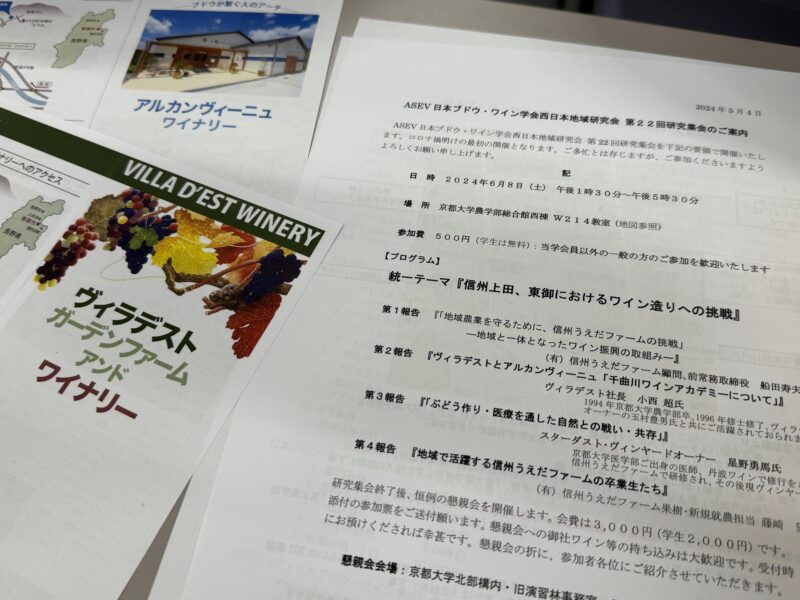 ブドウが繋ぐ人のアーチ
アルカンヴィーニュ
ワイナリー
長野県
ナリーへのアクセス
VILLA D'EST WINERY
ヴィラデスト
ガーデンファーム
アンド
ワイナリー
2024年5月4日
ASEV 日本ブドウ・ワイン学会西日本地域研究会 第22回研究集会のご案内
ASEV 日本ブドウ・ワイン学会西日本地域研究会 第22回研究集会を下記の要領で開催いたし
ます。コロナ禍明けの最初の開催となります。ご多忙とは存じますが、ご参加くださいますよう
よろしくお願い申し上げます。
記
日 時 2024年6月8日(土) 午後1時30分～午後5時30分
場 所 京都大学農学部総合館西棟 W214教室(地図参照)
参加費 500円(学生は無料):当学会員以外の一般の方のご参加を歓迎いたします
【プログラム】
統一テーマ『信州上田、東御におけるワイン造りへの挑戦』
第1報告 『「地域農業を守るために、信州うえだファームの挑戦」
―地域と一体となったワイン振興の取組み―』
(有)信州うえだファーム顧問、前常務取締役 船田寿夫
第2報告 『ヴィラデストとアルカンヴィーニュ「千曲川ワインアカデミーについて」』
ヴィラデスト社長 小西 超氏
1994年京都大学農学部卒、1996年修士修了、ヴィラ
オーナーの玉村豊男氏と共にご活躍されておられま
第3報告 『「ぶどう作り・医療を通した自然との戦い・共存」』
スターダスト・ヴィンヤードオーナー 星野勇馬氏
京都大学医学部ご出身の医師、丹波ワインで修行を
信州うえだファームで研修され、その後現ヴィンヤー
第4報告 『地域で活躍する信州うえだファームの卒業生たち』
(有)信州うえだファーム果樹・新規就農担当 藤崎
研究集会終了後、恒例の懇親会を開催します。会費は3,000円(学生2,000円)です。
添付の参加票をご送付願います。懇親会への御社ワイン等の持ち込みは大歓迎です。受付時
にお預けくだされば幸甚です。懇親会の折に、参加者各位にご紹介させていただきます。
懇親会会場:京都大学北部構内・旧演習林事務室